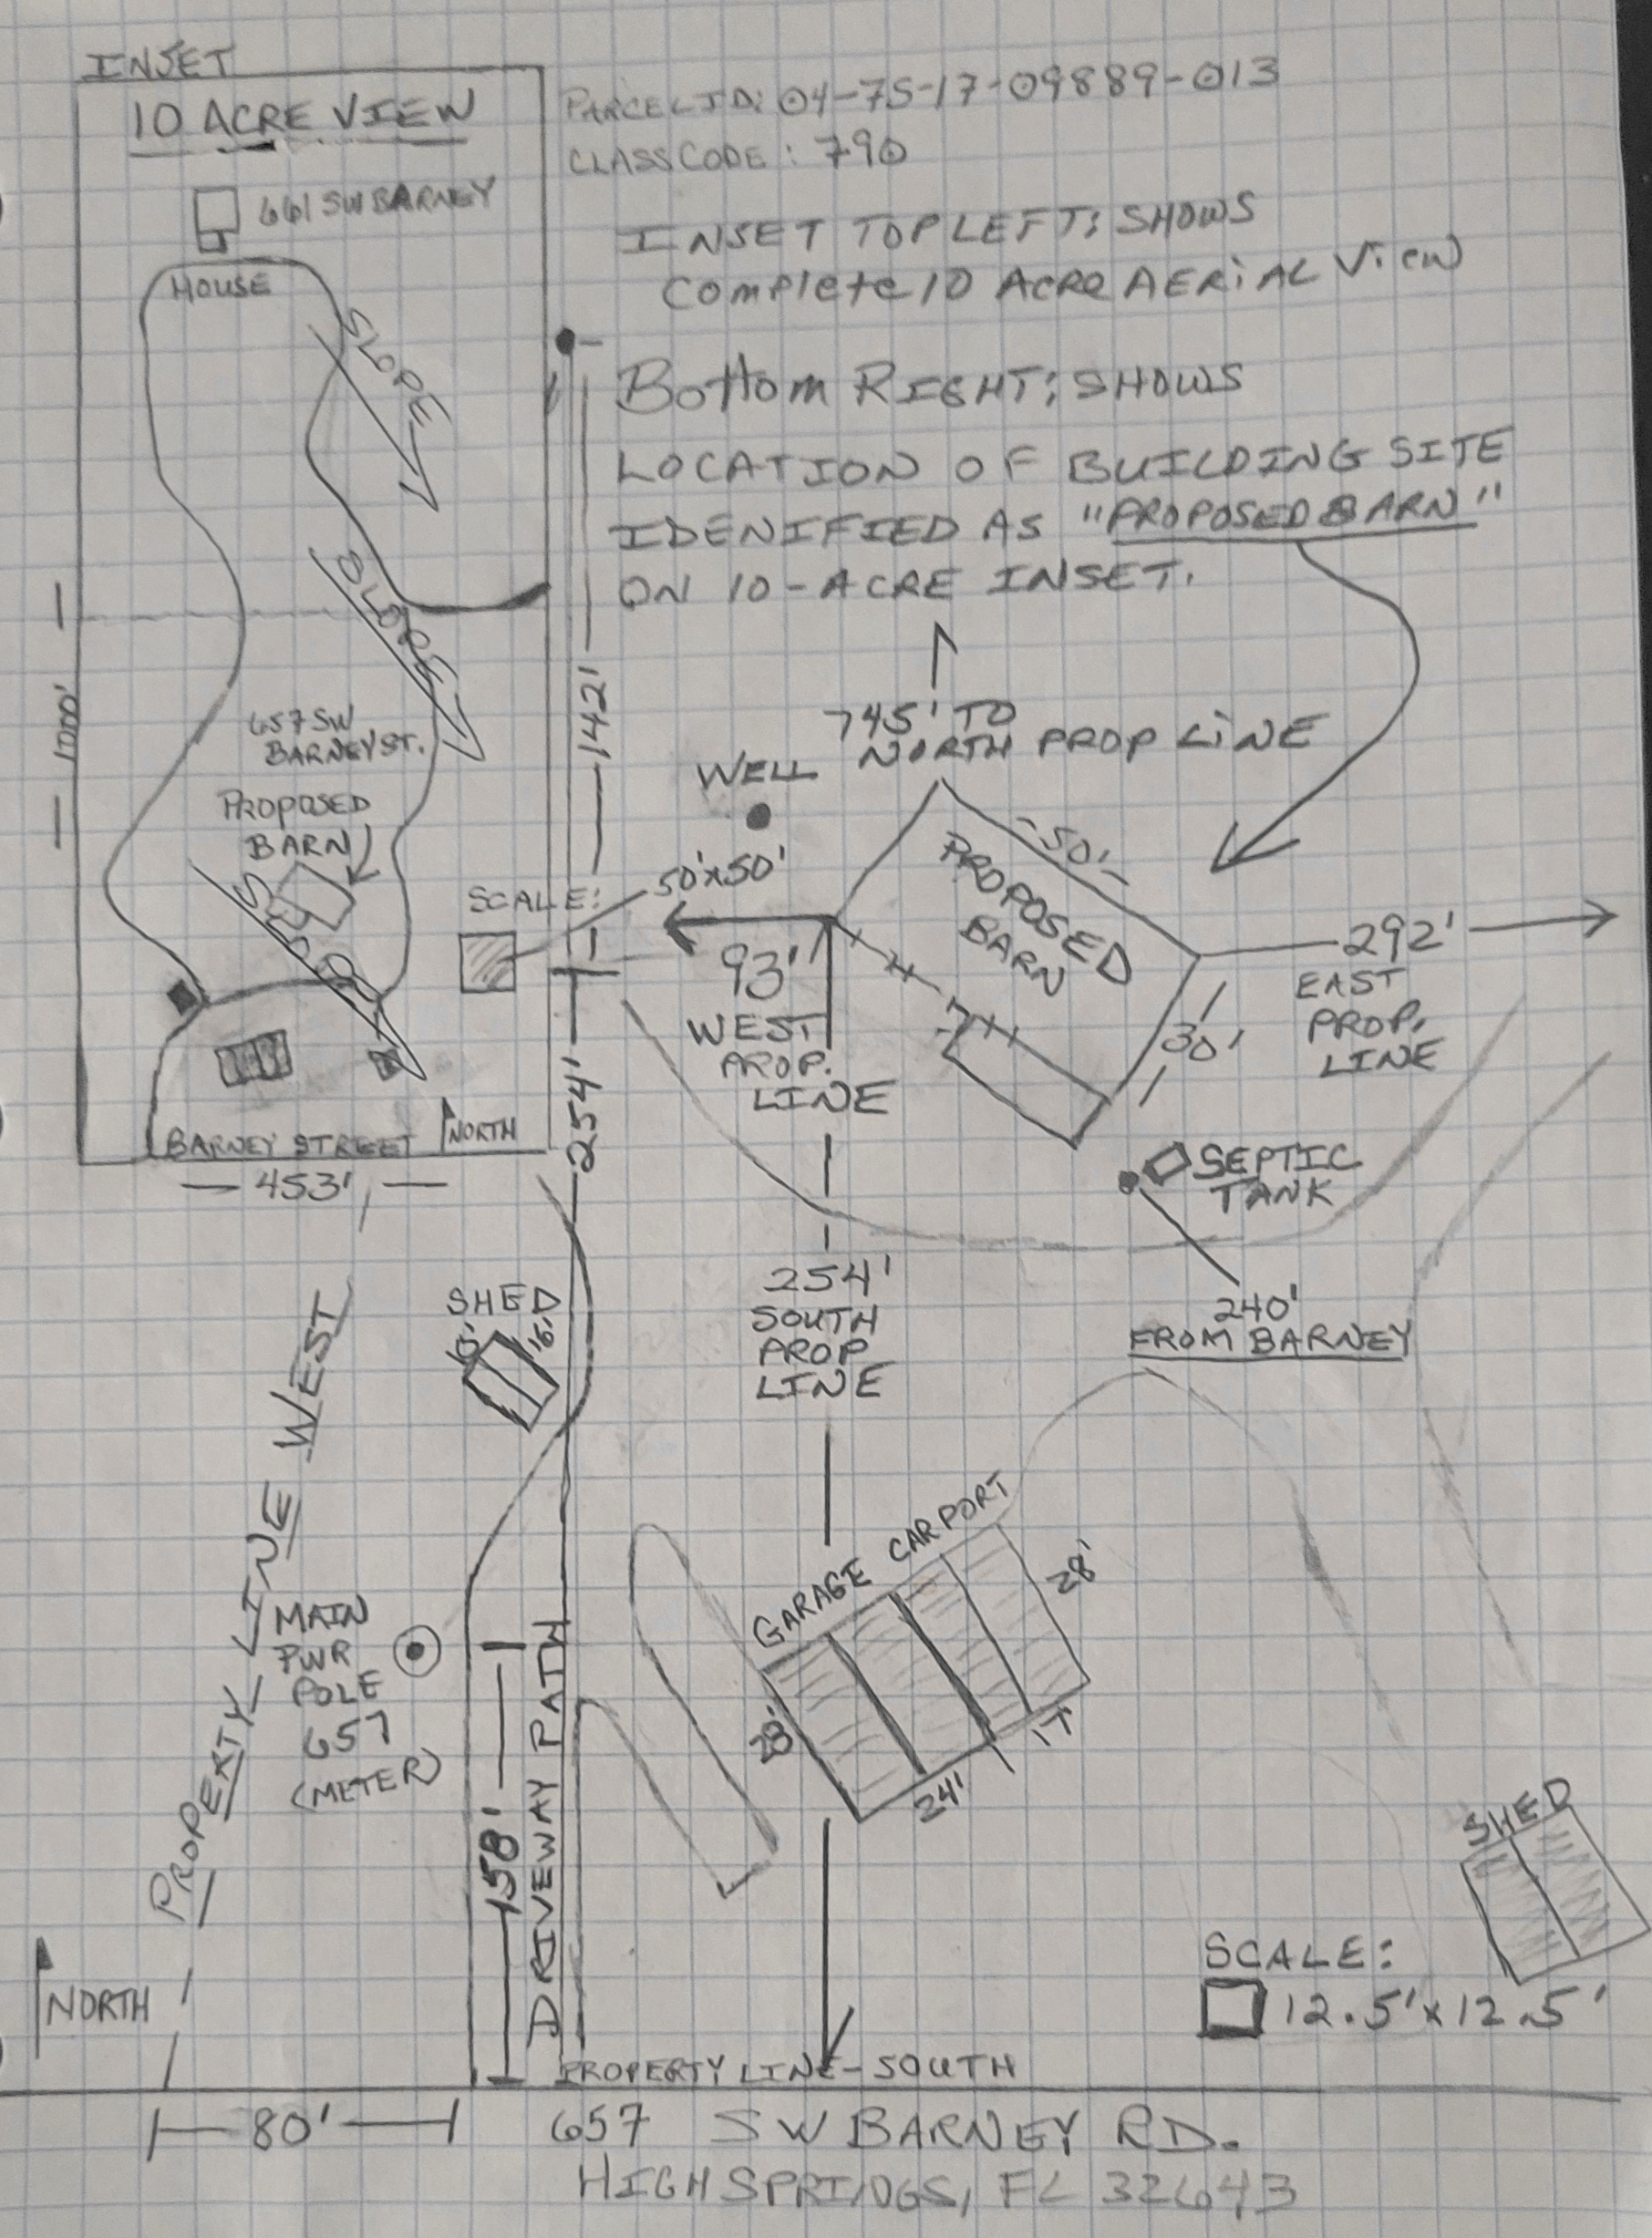 INSET
10 ACRE VIEW
661 SW BARNEY
HOUSE
SLOPE
SLOPE
1000'
657 SW
BARNEY ST.
PROPOSED
BARN
SLOPE
SCALE:
50'x50'
BARNEY STREET
NORTH
453'
PARCEL ID: 04-7S-17-09889-013
CLASS CODE: 790
INSET TOP LEFT: SHOWS
Complete 10 ACRe AERiAL View
Bottom RIGHT: SHOWS
LOCATION OF BUILDING SITE
IDENIFIED AS "PROPOSED BARN"
ON 10-ACRE INSET.
142'
254'
745' TO
NORTH PROP LiNE
WELL
50'
PROPOSED
BARN
30'
93'
WEST
PROP.
LINE
292'
EAST
PROP.
LINE
SEPTIC
TANK
240'
FROM BARNEY
254'
SOUTH
PROP
LINE
SHED
16'
PROPERTY LINE WEST
MAIN
PWR
POLE
657
(METER)
158'
DRIVEWAY PATH
GARAGE CARPORT
28'
28'
24'
17'
SHED
SCALE:
12.5'x12.5'
NORTH
PROPERTY LINE-SOUTH
80'
657 SW BARNEY RD.
HIGH SPRINGS, FL 32643